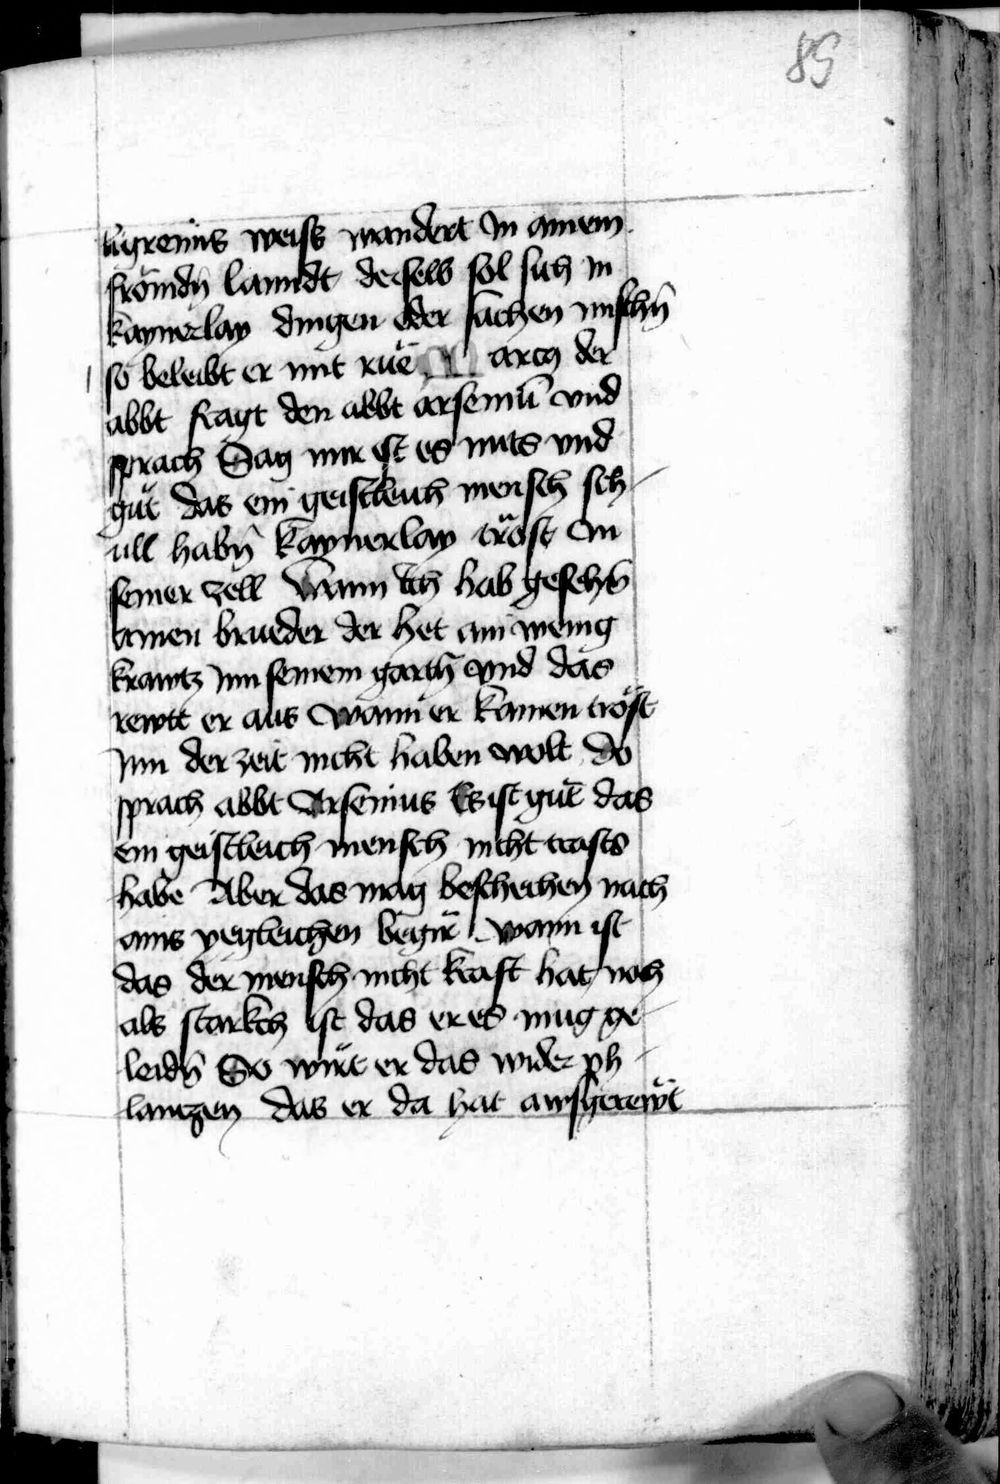 85
ligreims weiss wandert In ainem
frömdn̄ lanndt derselb sol sich in
kaynerlay dingen oder sachen mischn̄
so beleibt er mit rue Marcy der
abbt fragt den abbt arseniū vnd
sprach Sag mir ist es nuts vnd
güt das ein geistleich mensch sch
üll habn̄ kaynerlay tröst In
seiner zell Wann Ich hab gesehn̄
ainen brueder der het ain wenig
krawtz Inn seinem gartn̄ vnd das
rewtt er aus wann er kainen tröst
Inn der zeit nicht haben wolt Do
sprach abbt Arsenius Es ist güt das
ein geistleich mensch nicht trasts
habe Aber das mag beschechen nach
ains yegleichen begir wann ist
das der mensch nicht kraft hat noch
als starkch ist das er es mug ge
leidn̄ So wirt er das wider ph
lantzen das er da hat awsgerewt